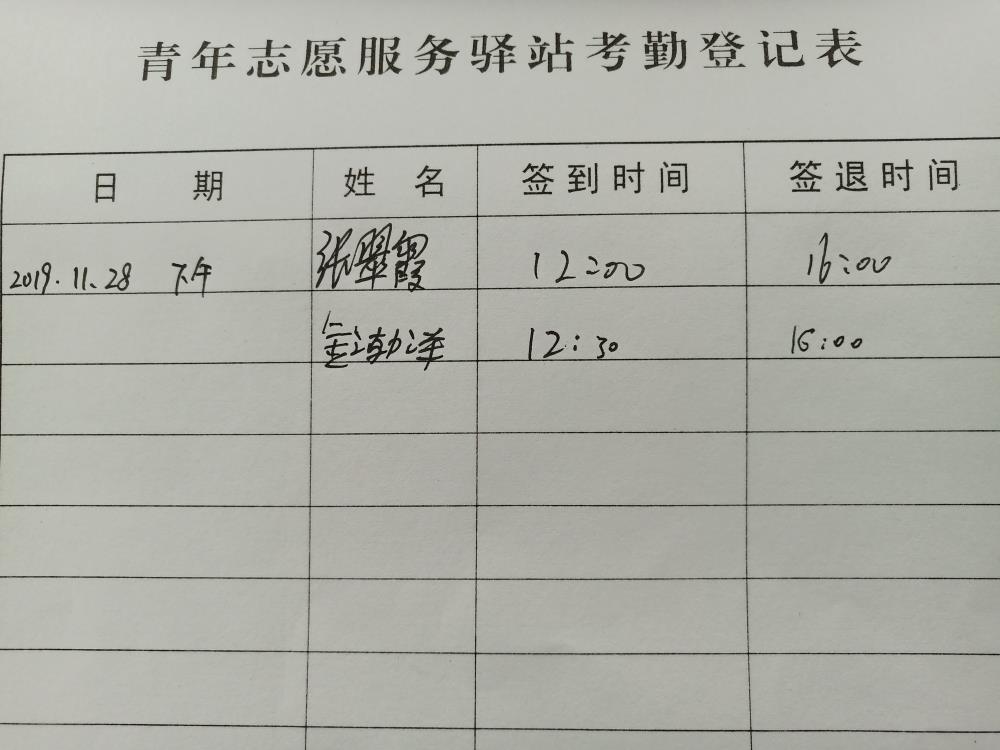 青年志愿服务驿站考勤登记表
日 期 姓 名 签到时间 签退时间
2019.11.28 下午 张翠霞 12:00 16:00
金渤洋 12:30 16:00